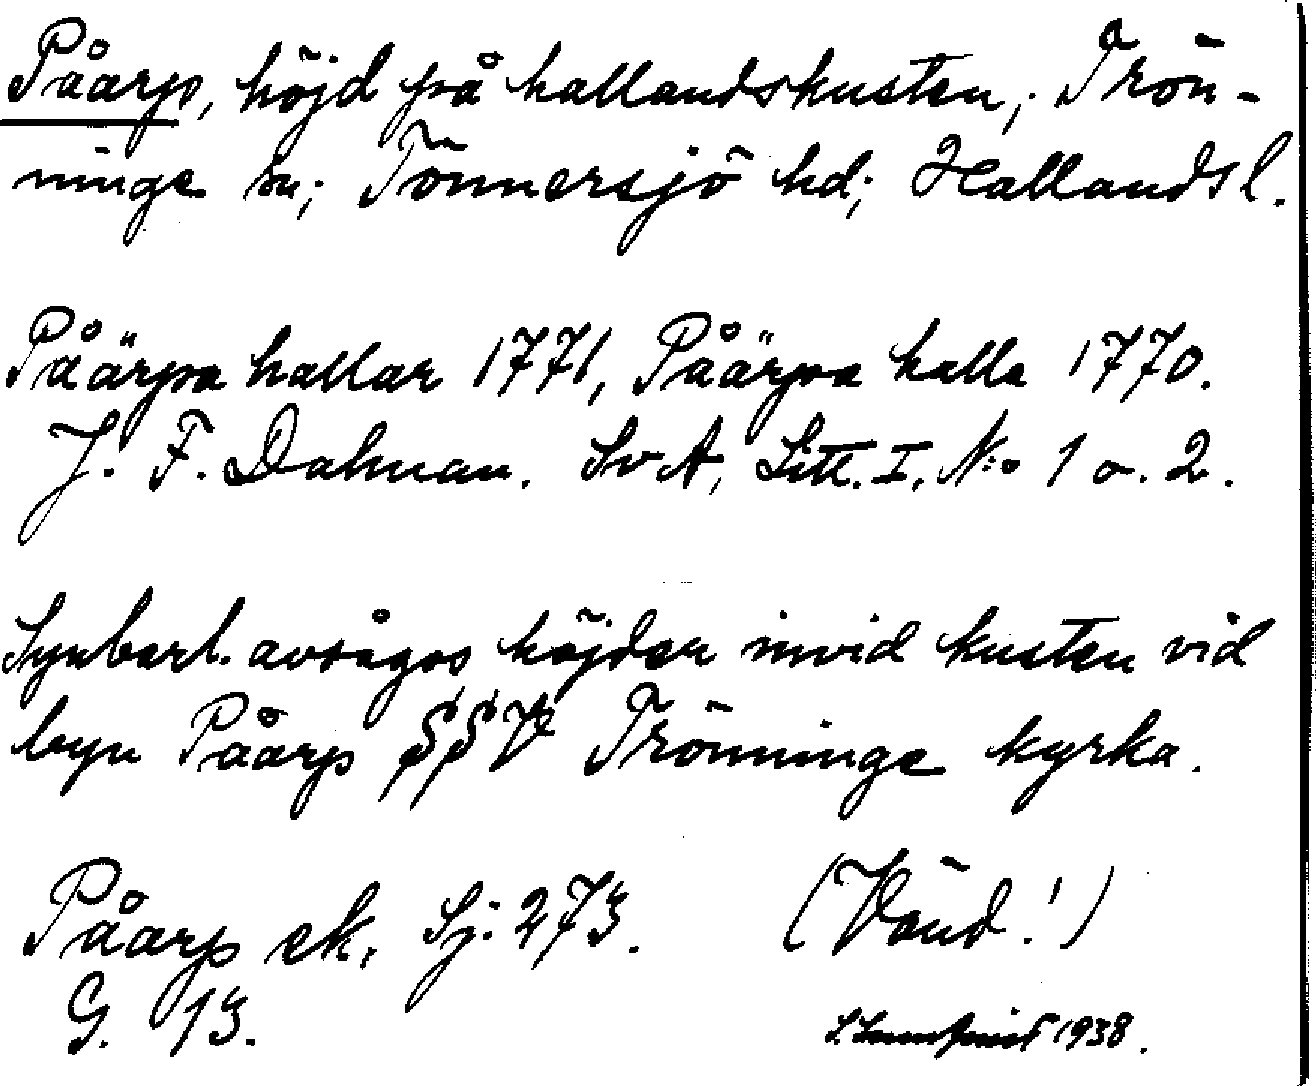 Påarp, höjd på hallandskusten; Trön-
ninge sn; Tönnersjö hd; Hallandsl.
Påärpa hallar 1771, Påärpa halla 1770.
J. F. Dalman. SvA, Litt. I, N:o 1 o. 2.
Synbarl. avsågos höjder invid kusten vid
byn Påarp SSV Trönninge kyrka.
Påarp ek. Sj. 273. (Vänd!)
G. 13.
1938.